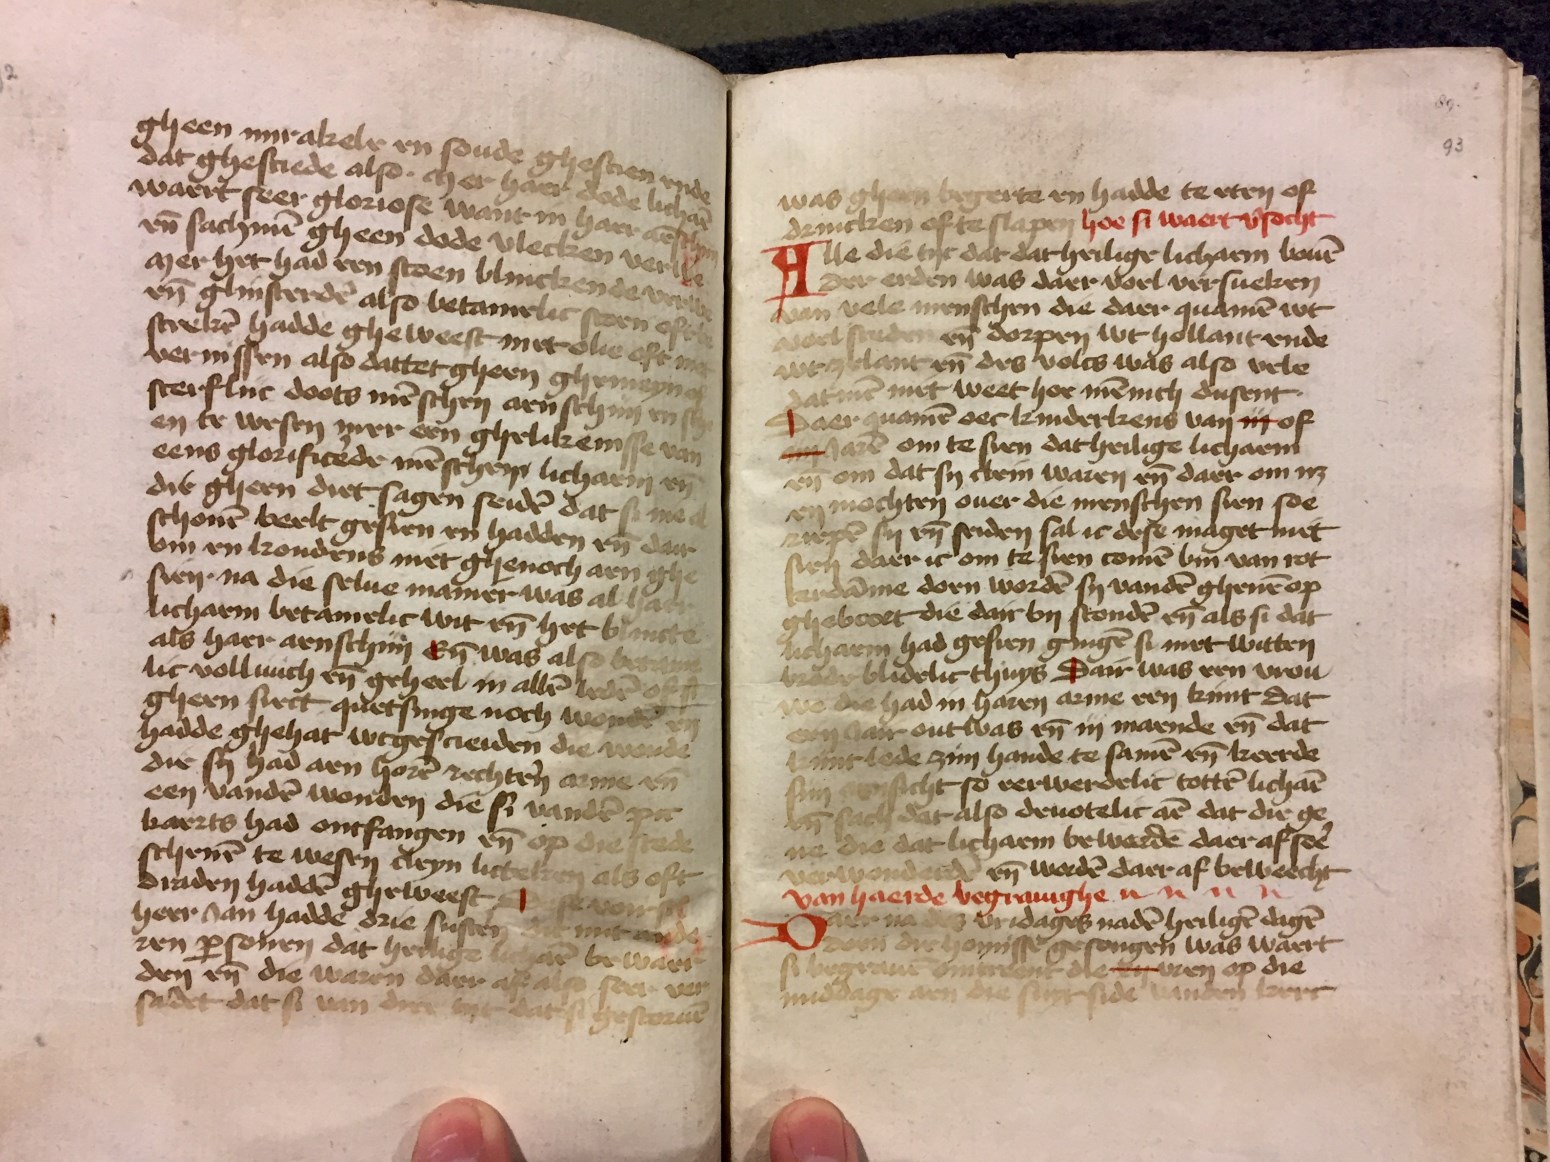 92
gheen mirakele en soude ghescien ende
dat ghesciede also. Mer haer dode lichaē
waert seer gloriose want in haer aēschyn
eñ sachmē gheen dode vlecken
mer het had een scoen blinckende verwe
eñ glinsterdē also betamelic scoen oft
streken hadde gheweest met olie oft met
vernissen also dattet gheen ghemeyn
sterflijc doots mēschen aenschijn en
en te wesen mer een ghelikenisse van
eens glorificēde mēschen lichaem eñ
die gheen diet sagen seidē dat si
schonē beelt gesien en hadden eñ dair
om en kondens niet ghenoch aen ghe
sien. na die selue manier was al haer
lichaem betamelic wit eñ het blincte
als haer aenschijn Eñ was also betame
lic vollmich eñ geheel in allē ledē oft si
gheen siect quetsinge noch wonden eñ
hadde ghehat wtgescieiden die wonde
die sy had aen horē rechtern arme eñ
een vandē wonden die si vandē
kaerts had ontfangen eñ op die stede
schenē te wesen cleyn licteken als oft
draden haddē gheweest
heer Jan haddē drie susteren die mit
ren psonen dat heilige lichaē bewaer
den eñ die waren daer af also seer ver
sadet dat si van dier tijt dat si gestoruē
89.
93
was gheen begerte en hadde te eten of
drincken of te slapen hoe si waert vsocht
Alle die tijt dat dat heilige lichaem bouē
der erden was daer voel versueken
van vele menschen die daer quamē wt
voel steden eñ dorpen wt hollant ende
wt zelant eñ des volcs was also vele
datmē niet weet hoe mēnich dusent.
Daer quamē oec kinderkens van iij of
iaren om te sien dat heilige lichaem
eñ om dat sy clein waren eñ daer om
en mochten ouer die menschen sien soe
riepē sy eñ seiden sal ic dese maget niet
sien daer ic om te sien comē bin van rot
terdamme doen wordē sy vandē ghenē op
gheboert die dair by stondē eñ als si dat
lichaem had gesien gingē si met witten
brode blidelic thuys Dair was een vrou
we die had in haren arme een kint dat
een iair out was eñ iii maende eñ dat
kint lede zijn hande te samē eñ keerde
sijn aensicht so eerwerdelic tottē lichaē
eñ sach dat also deuotelic aē dat die ge
ne die dat lichaem bewardē daer af seer
verwonderde eñ wordē daer af beweecht
van haerde begrauighe
Daer na des vridages nadē heiligē dagē
doen die homisse gesongen was waert
si begrauē omtrent die uren op die
middage aen die suyt side vanden kerc